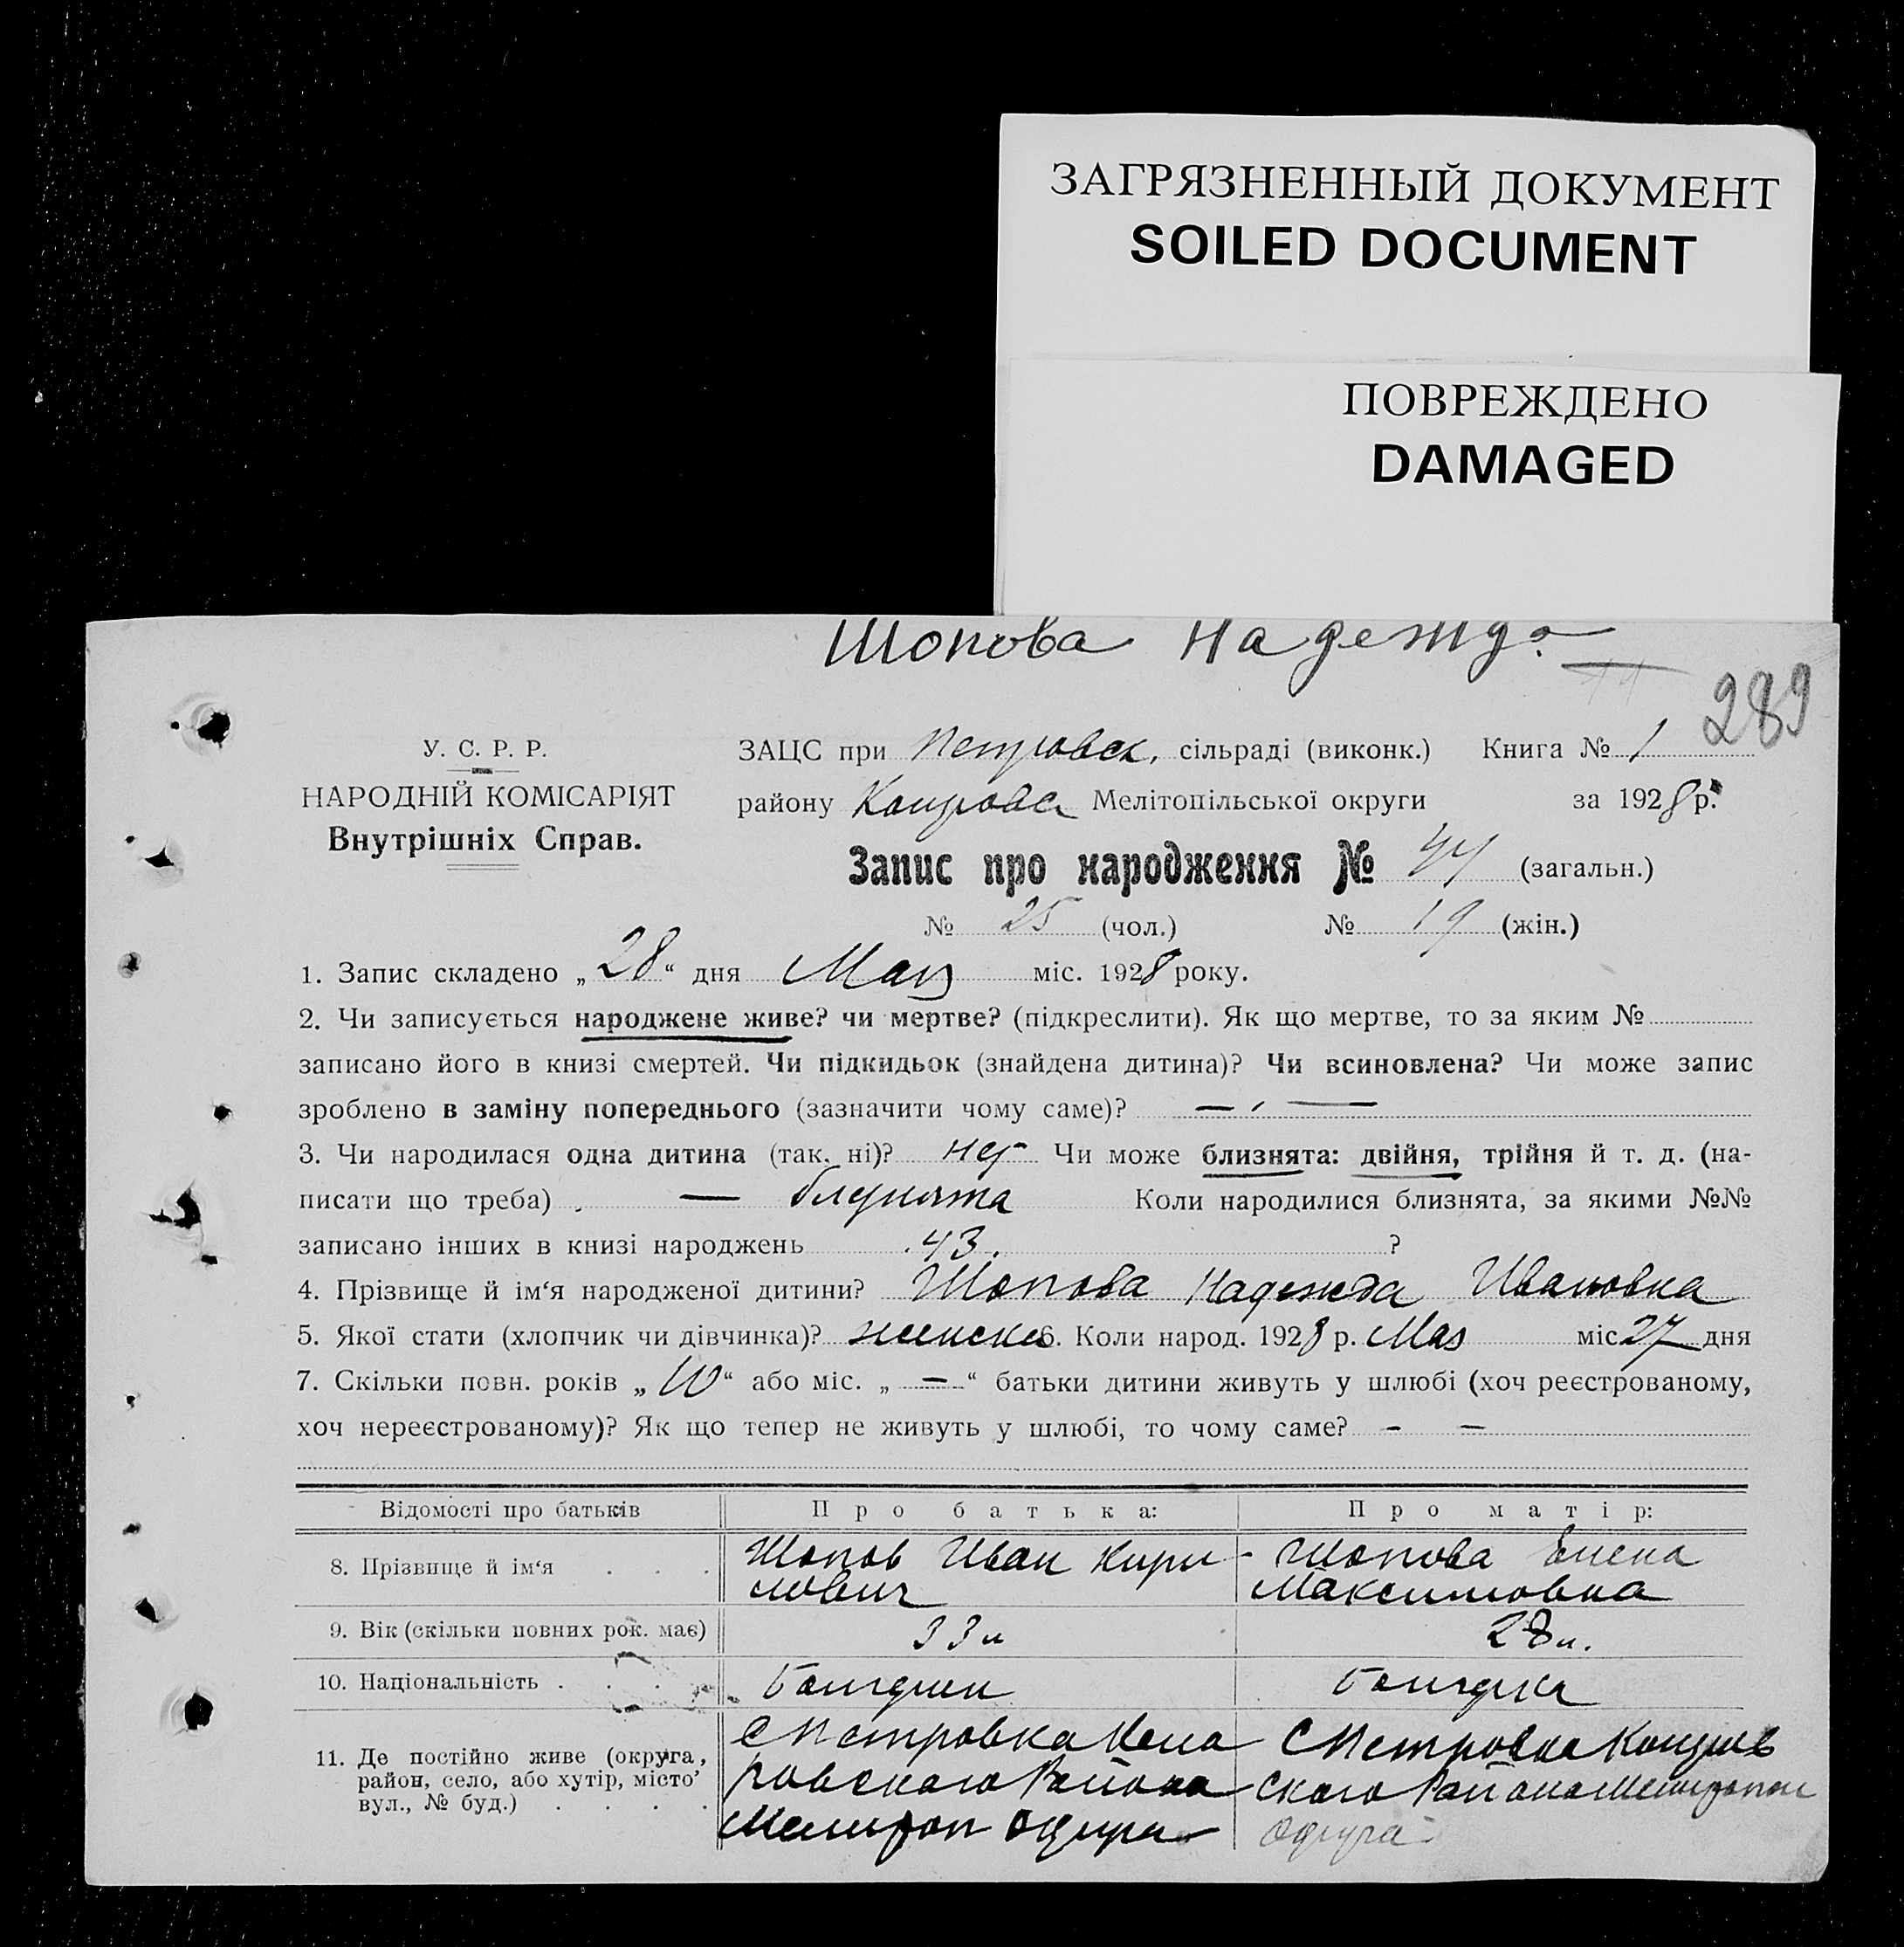 ЗАГРЯЗНЕННЫЙ ДОКУМЕНТ
SOILED DOCUMENT
ПОВРЕЖДЕНО
DAMAGED
Шопова Надежда
289
У. С. Р. Р.
НАРОДНІЙ КОМІСАРІЯТ
Внутрішніх Справ.
ЗАЦС при Петровск. сільраді (виконк.) Книга № 1
району Мелітопільської округи за 1928 р.
Запис про народження № 44 (загальн.)
№ 25 (чол.) № 19 (жін.)
1. Запис складено „28“ дня Мая міс. 1928 року.
2. Чи записується народжене живе? чи мертве? (підкреслити). Як що мертве, то за яким №
записано його в книзі смертей. Чи підкидьок (знайдена дитина)? Чи всиновлена? Чи може запис
зроблено в заміну попереднього (зазначити чому саме)? —
3. Чи народилася одна дитина (так, ні)? нет Чи може близнята: двійня, трійня й т. д. (на-
писати що треба) — близнята Коли народилися близнята, за якими №№
записано інших в книзі народжень 43. ?
4. Прізвище й ім‘я народженої дитини? Шопова Надежда Ивановна
5. Якої стати (хлопчик чи дівчинка)? 6. Коли народ. 1928 р. Мая міс 27 дня
7. Скільки повн. років „10“ або міс. „—“ батьки дитини живуть у шлюбі (хоч реєстрованому,
хоч нереєстрованому)? Як що тепер не живуть у шлюбі, то чому саме? - —
Відомості про батьків Про батька: Про матір:
8. Прізвище й ім‘я . . . Шопов Иван Кири- Шопова Елена
лович Максимовна
9. Вік (скільки повних рок. має) 33 л 28 л.
10. Національність . . . . Болгарин Болгарка
11. Де постійно живе (округа, С Петровка С Петровка
район, село, або хутір, місто, ровского Района ского Района Мелитопол
вул., № буд.) . . . . Мелитоп Округа Округа